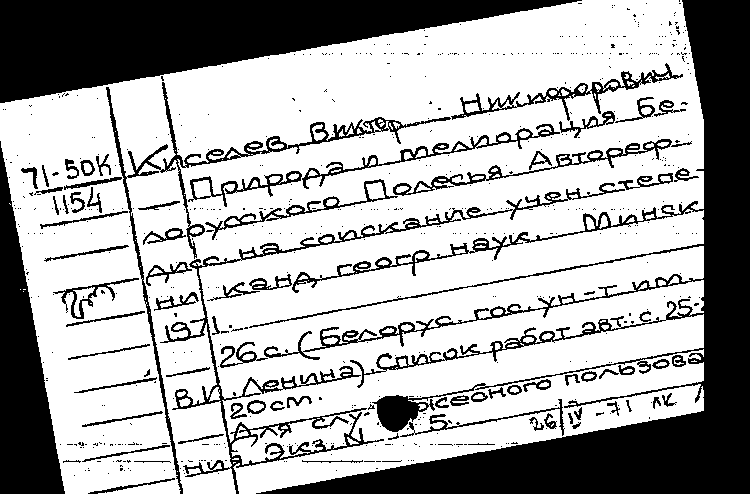 71-50К
1154
Киселев, Виктор Никифорович
Природа и мелиорация Бе-
лорусского Полесья. Автореф.
дисс. на соискание учен. степе-
ни канд. геогр. наук. Минск,
1971.
26 с. (Белорус. гос. ун-т им.
В.И. Ленина). Список работ авт.: с. 25-2
20 см.
Для служебного пользова
ния. Экз. N 5.
26/IV-71 ЛК